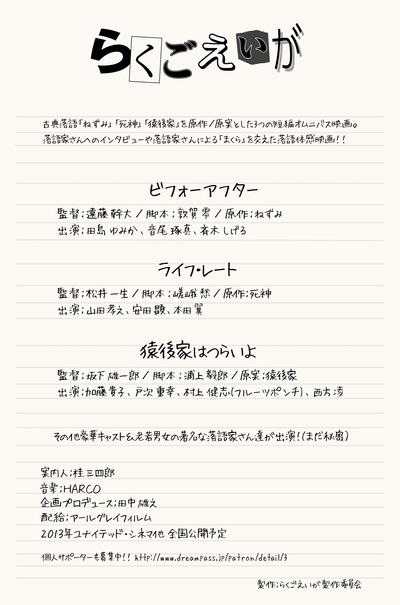 らくごえいが
古典落語「ねずみ」「死神」「猿後家」を原作/原案とした3つの短編オムニバス映画。
落語家さんへのインタビューや落語家さんによる「まくら」を交えた落語体感映画!!
ビフォーアフター
監督;遠藤 幹大 / 脚本;敦賀 零 / 原作;ねずみ
出演;田島 ゆみか、音尾 琢真、斉木 しげる
ライフ・レート
監督;松井 一生 / 脚本;嵯峨 愁 / 原作;死神
出演;山田 孝之、安田 顕、本田 翼
猿後家はつらいよ
監督;坂下 雄一郎 / 脚本;浦上 毅郎 / 原案;猿後家
出演;加藤 貴子、戸次 重幸、村上 健志(フルーツポンチ)、西方 凌
その他豪華キャスト&老若男女の著名な落語家さん達が出演!(まだ秘密)
案内人;桂 三四郎
音楽;HARCO
企画プロデュース;田中 雄之
配給;アールグレイフィルム
2013年ユナイテッド・シネマ他 全国公開予定
個人サポーターも募集中!! http://www.dreampass.jp/patron/detail/3
製作;らくごえいが製作委員会